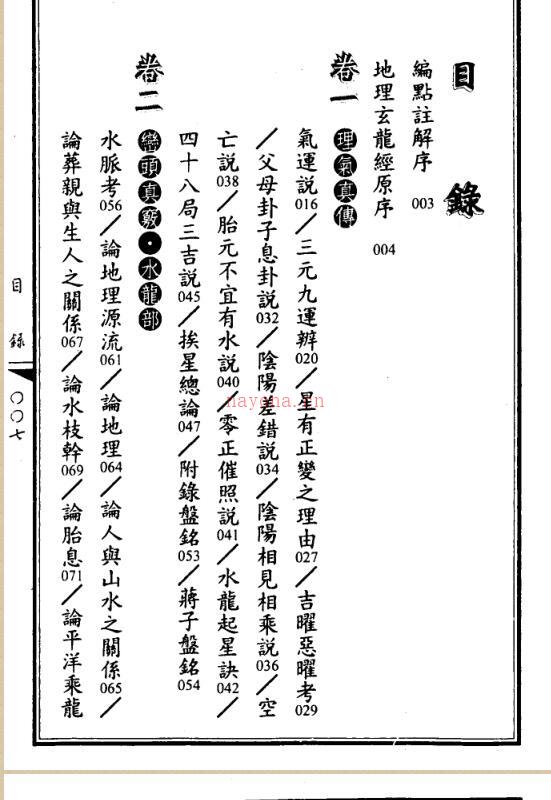 目錄
編點註解序 003
地理玄龍經原序 004
卷一 理氣真傳
氣運說016／三元九運辨020／星有正變之理由027／吉曜惡曜考029
／父母卦子息卦說032／陰陽差錯說034／陰陽相見相乘說036／空
亡說038／胎元不宜有水說040／零正催照說041／水龍起星訣042／
四十八局三吉說045／挨星總論047／附錄盤銘053／蔣子盤銘054
卷二 巒頭真竅・水龍部
水脈考056／論地理源流061／論地理064／論人與山水之關係065／
論葬親與生人之關係067／論水枝幹069／論胎息071／論平洋乘龍
目錄
〇〇七
nayona.cn